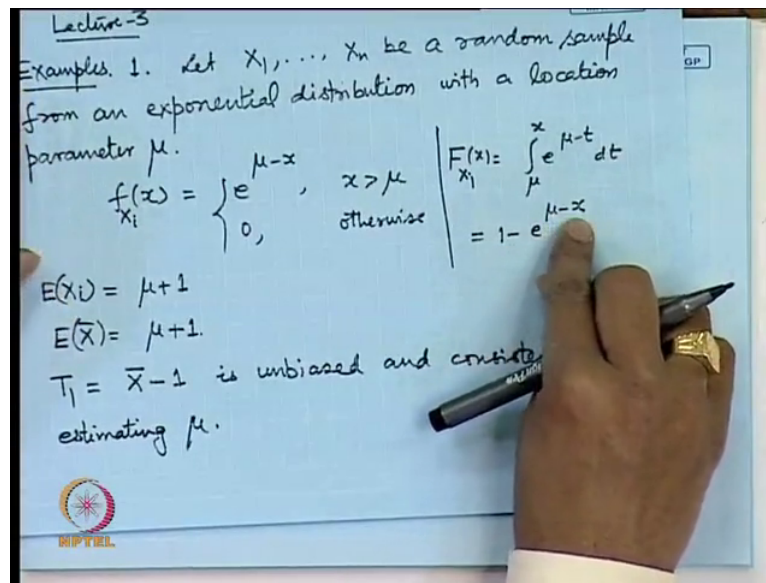 Lecture-3
GP
Examples. 1. Let X₁, ..., Xₙ be a random sample
from an exponential distribution with a location
parameter μ.
f_{X_i}(x) = { e^{μ-x}, x > μ
0, otherwise
F_{X_1}(x) = ∫_μ^x e^{μ-t} dt
= 1 - e^{μ-x}
E(X_i) = μ+1
E(X̄) = μ+1.
T₁ = X̄ - 1 is unbiased and
estimating μ.
NPTEL